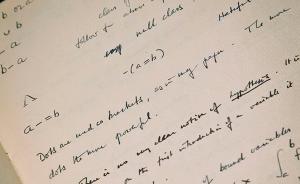 b or a
class
∪ b
follow & above
– a
null class
b – a
–(a = b)
Λ
a – = b
Dots are used as brackets, as in my paper. The more
dots the more powerful.
There is no very clear notion of hypothesis. It is
on the first introduction of a variable it
of bound variables